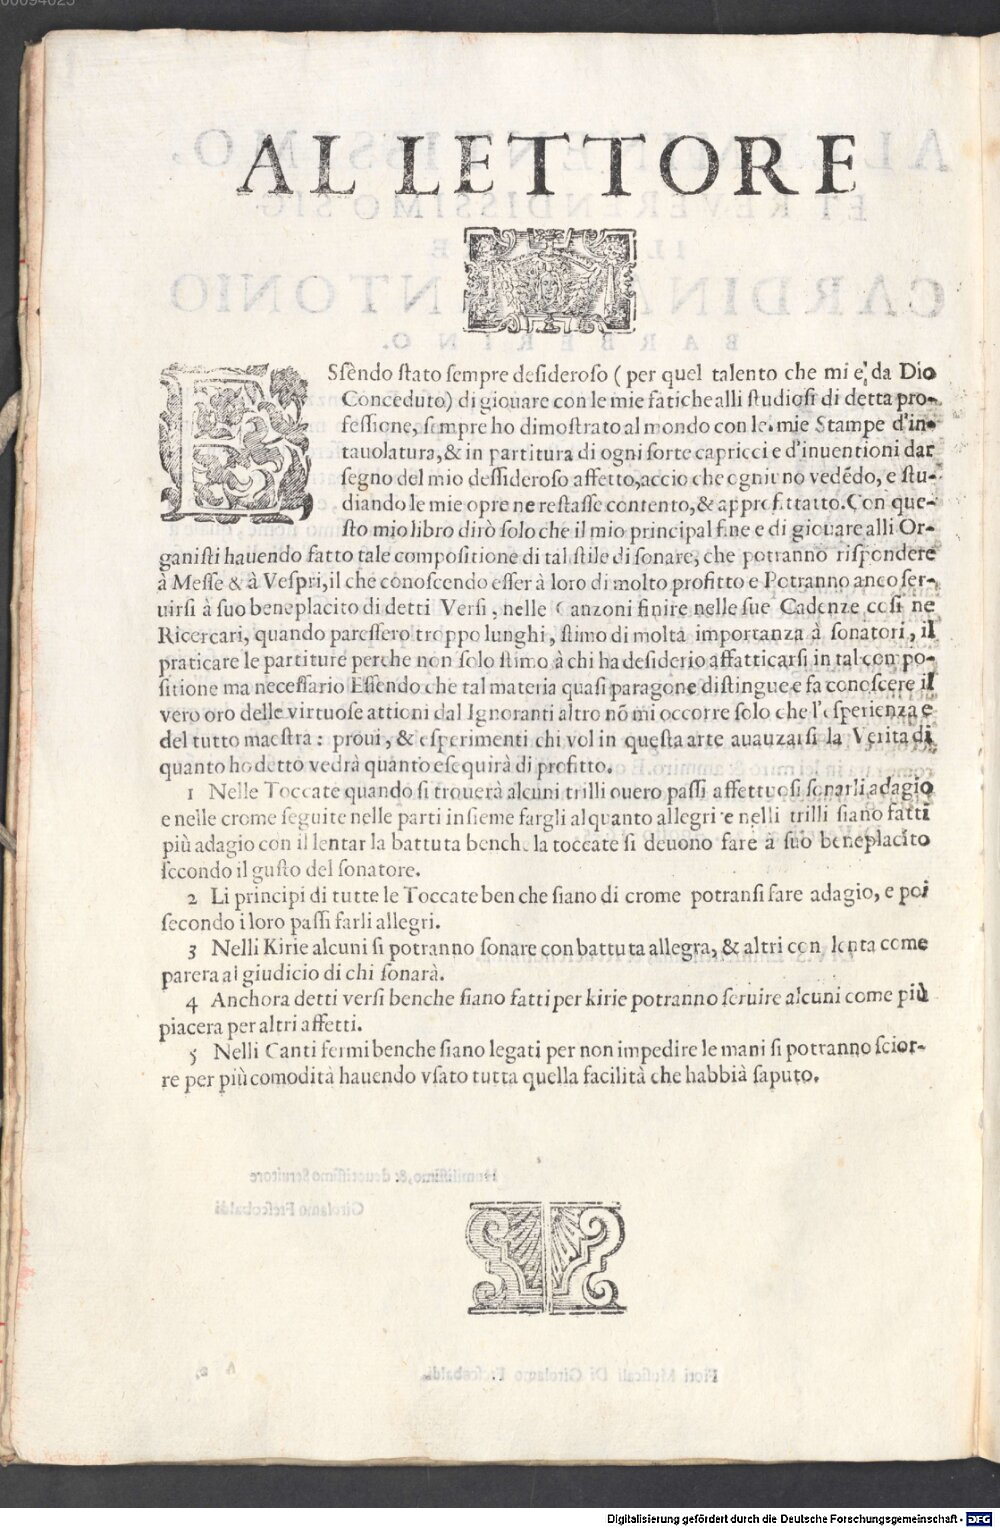 00094025
AL LETTORE
ESsēndo stato sempre desideroso ( per quel talento che mi e' da Dio
Conceduto) di giouare con le mie fatiche alli studiosi di detta pro-
fessione, sempre ho dimostrato al mondo con le mie Stampe d'in-
tauolatura, & in partitura di ogni sorte capricci e d'inuentioni dar
segno del mio dessideroso affetto, accio che ogniuno vedēdo, e stu-
diando le mie opre ne restasse contento, & approfittatto. Con que-
sto mio libro dirò solo che il mio principal fine e di giouare alli Or-
ganisti hauendo fatto tale compositione di tal stile di sonare, che potranno rispondere
à Messe & à Vespri, il che conoscendo esser à loro di molto profitto e Potranno anco ser-
uirsi à suo beneplacito di detti Versi, nelle Canzoni finire nelle sue Cadenze cosi ne
Ricercari, quando paressero troppo lunghi, stimo di molta importanza à sonatori, il
praticare le partiture perche non solo stimo à chi ha desiderio affatticarsi in tal compo-
sitione ma necessario Essendo che tal materia quasi paragone distingue e fa conoscere il
vero oro delle virtuose attioni dal Ignoranti altro nō mi occorre solo che l'esperienza e
del tutto maestra: proui, & esperimenti chi vol in questa arte auauzarsi la Verita di
quanto ho detto vedrà quanto esequirà di profitto.
1 Nelle Toccate quando si trouerà alcuni trilli ouero passi affettuosi sonarli adagio
e nelle crome seguite nelle parti insieme fargli alquanto allegri e nelli trilli siano fatti
più adagio con il lentar la battuta benche la toccate si deuono fare a suo beneplacito
secondo il gusto del sonatore.
2 Li principi di tutte le Toccate ben che siano di crome potransi fare adagio, e poi
secondo i loro passi farli allegri.
3 Nelli Kirie alcuni si potranno sonare con battuta allegra, & altri con lenta come
parera al giudicio di chi sonarà.
4 Anchora detti versi benche siano fatti per kirie potranno seruire alcuni come più
piacera per altri affetti.
5 Nelli Canti fermi benche siano legati per non impedire le mani si potranno scior-
re per più comodità hauendo vsato tutta quella facilità che habbià saputo.
Digitalisierung gefördert durch die Deutsche Forschungsgemeinschaft - DFG